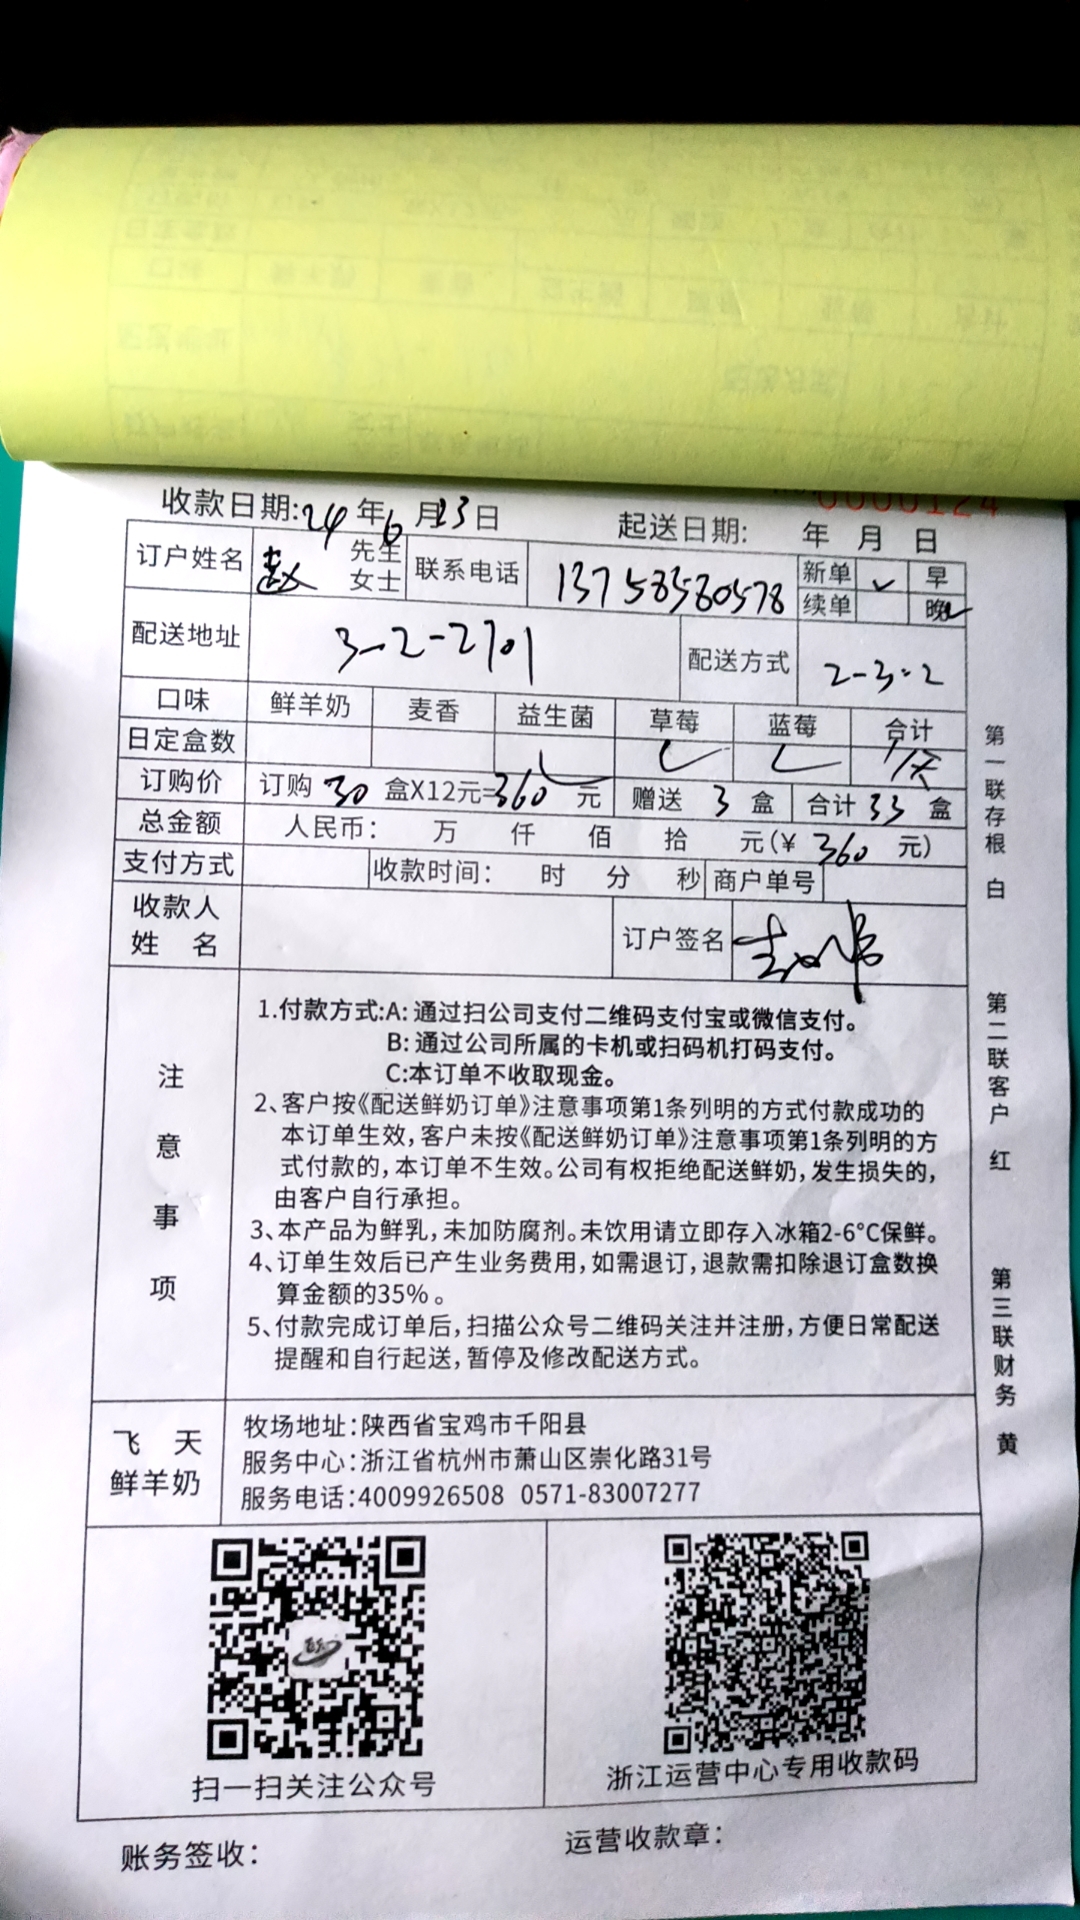 0000124
收款日期:24年6月23日 起送日期: 年 月 日
订户姓名 赵 先生 女士 联系电话 13758580578 新单 ✓ 早
续单 晚✓
配送地址 3-2-2701 配送方式 2-3-2
口味 鲜羊奶 麦香 益生菌 草莓 蓝莓 合计
日定盒数 1/天
订购价 订购 30 盒X12元=360元 赠送 3 盒 合计 33 盒
总金额 人民币： 万 仟 佰 拾 元(¥ 360 元)
支付方式 收款时间： 时 分 秒 商户单号
收款人姓名 订户签名
注意事项
1.付款方式:A:通过扫公司支付二维码支付宝或微信支付。
B:通过公司所属的卡机或扫码机打码支付。
C:本订单不收取现金。
2、客户按《配送鲜奶订单》注意事项第1条列明的方式付款成功的
本订单生效,客户未按《配送鲜奶订单》注意事项第1条列明的方
式付款的,本订单不生效。公司有权拒绝配送鲜奶,发生损失的,
由客户自行承担。
3、本产品为鲜乳,未加防腐剂。未饮用请立即存入冰箱2-6°C保鲜。
4、订单生效后已产生业务费用,如需退订,退款需扣除退订盒数换
算金额的35%。
5、付款完成订单后,扫描公众号二维码关注并注册,方便日常配送
提醒和自行起送,暂停及修改配送方式。
飞天鲜羊奶
牧场地址:陕西省宝鸡市千阳县
服务中心:浙江省杭州市萧山区崇化路31号
服务电话:4009926508 0571-83007277
扫一扫关注公众号 浙江运营中心专用收款码
账务签收： 运营收款章：
第一联存根 白
第二联客户 红
第三联财务 黄